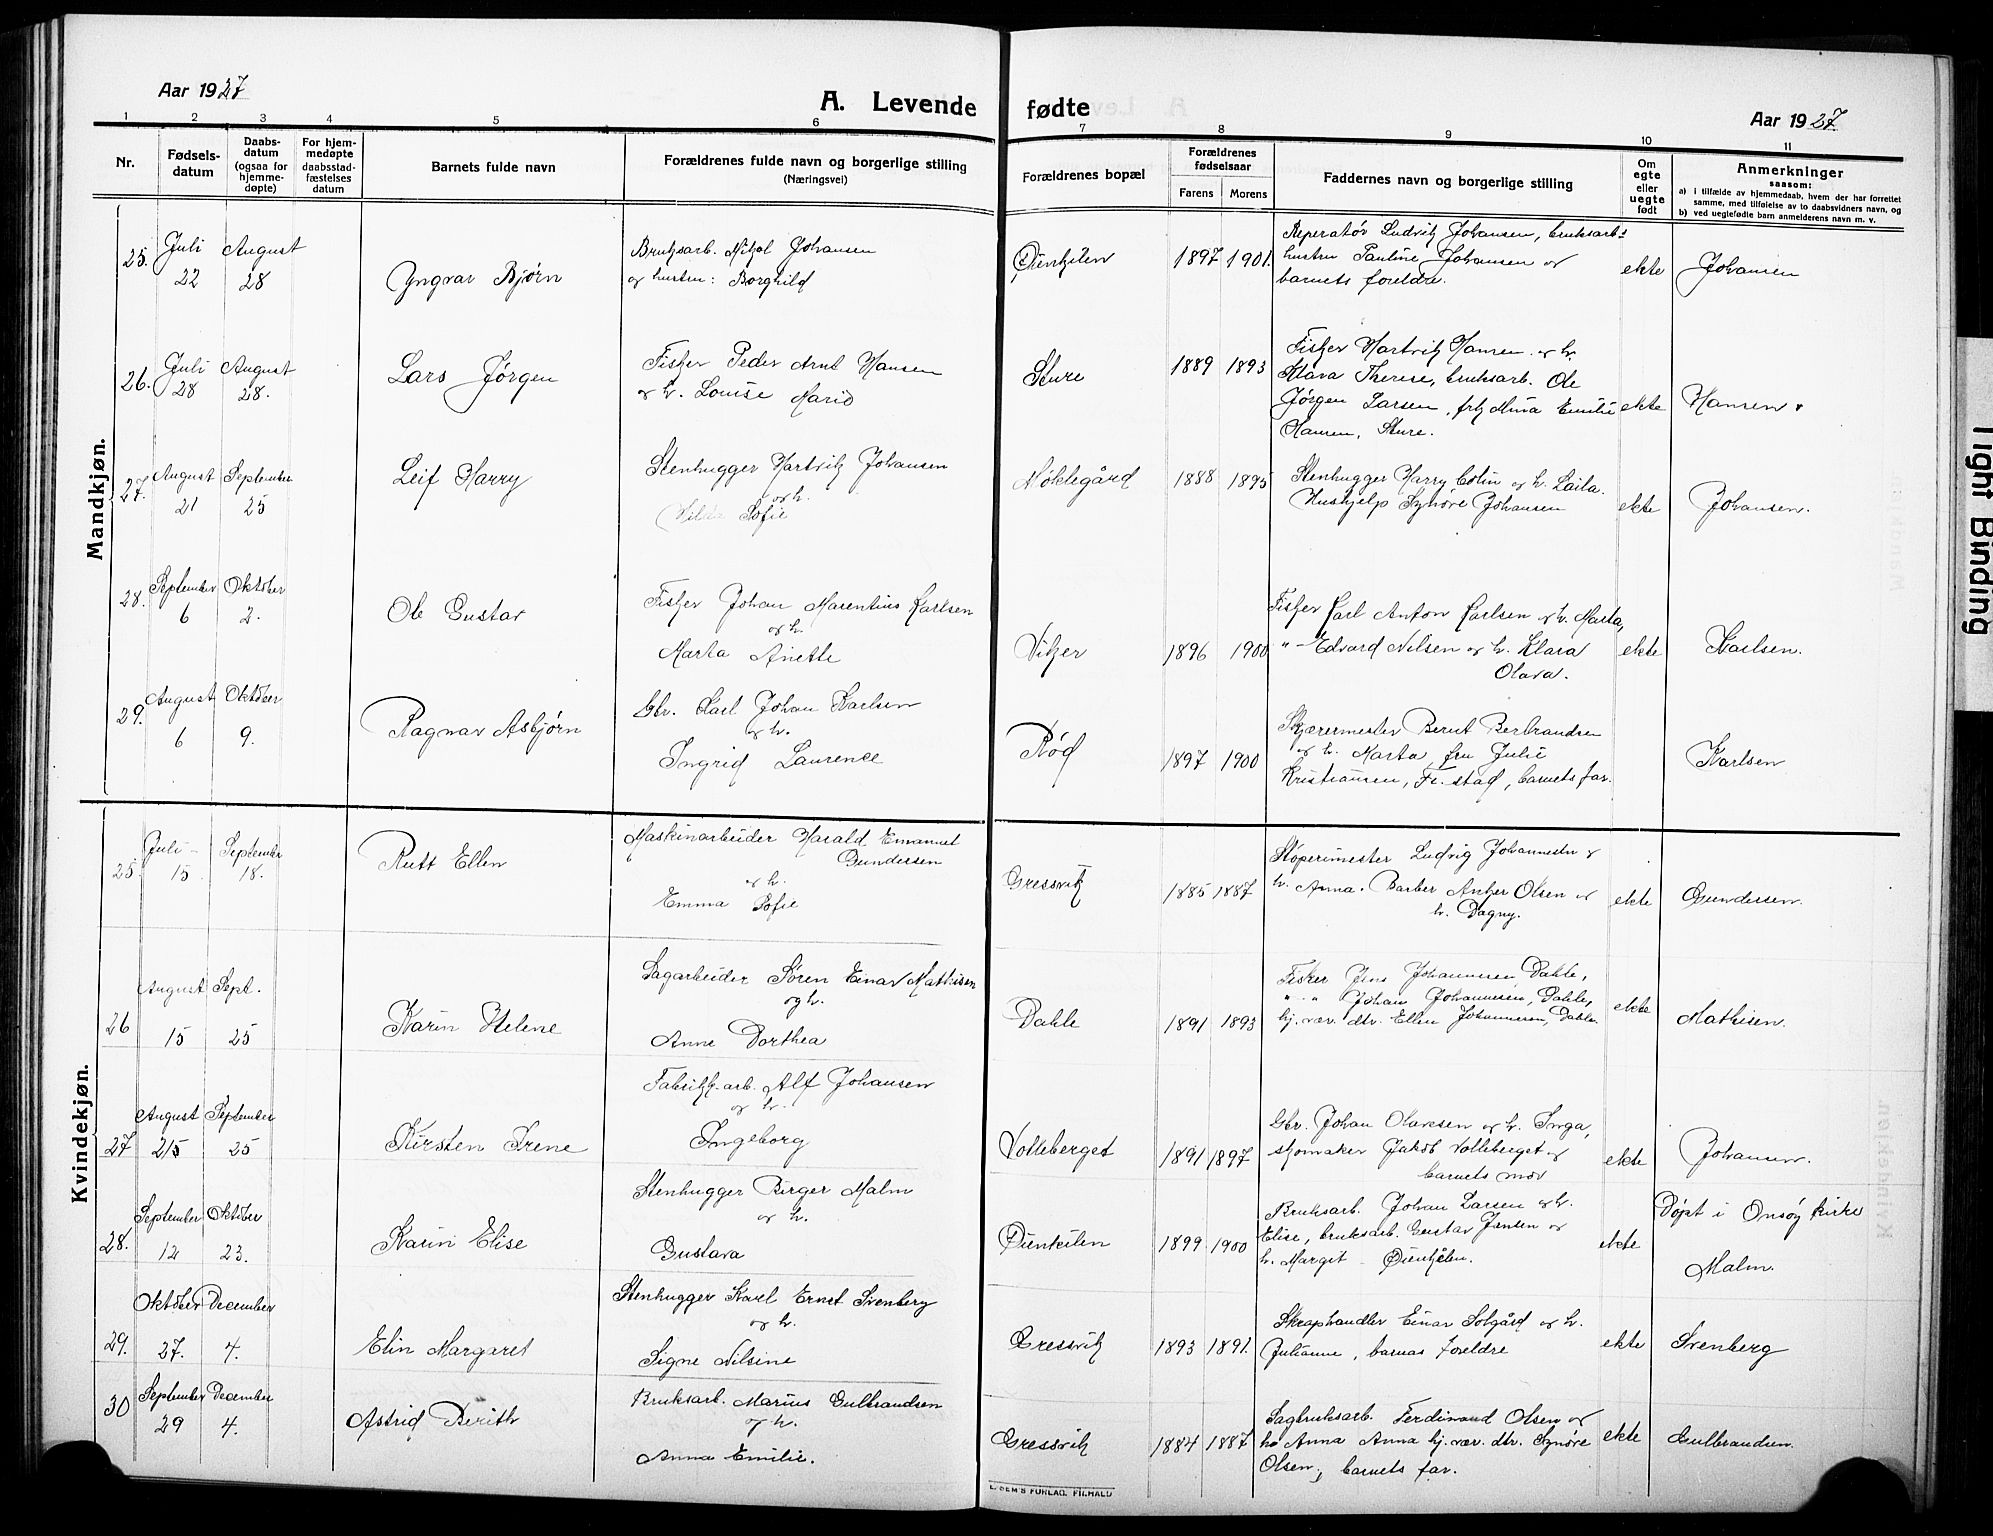 Aar 1927
A. Levende fødte
Aar 1927
1 2 3 4 5 6 7 8 9 10 11
Nr.
Fødsels-
datum
Daabs-
datum
(ogsaa for
hjemme-
døpte)
For hjem-
medøpte
daabsstad-
fæstelses
datum
Barnets fulde navn
Forældrenes fulde navn og borgerlige stilling
(Næringsvei)
Forældrenes bopæl
Forældrenes
fødselsaar
Farens Morens
Faddernes navn og borgerlige stilling
Om
egte
eller
uegte
født
Anmerkninger
saasom:
a) i tilfælde av hjemmedaab, hvem der har forrettet
samme, med tilføielse av to daabsvidners navn, og
b) ved uegtefødte barn anmelderens navn m. v.
Mandkjøn.
25. Juli 22 August 28
Yngvar Bjørn
Bruksarb. Nikol Johansen
og hustru: Borghild
Øienkilen 1897 1901.
Reperatør Ludvik Johansen, bruksarb.s
hustru Pauline Johansen og
barnets foreldre.
ekte Johansen
26. Juli 28 August 28.
Lars Jørgen
Fisker Peder Arnt Hansen
og h. Louise Marie
Sture 1889 1893
Fisker Hartvik Hansen og h.
Klara Therese, bruksarb. Ole
Jørgen Larsen, frk Mina Emilie
Hansen, Sture.
ekte Hansen
27. August 21 September 25
Leif Harry
Stenhugger Hartvik Johansen
og h.
Hilda Sofie
Møklegård 1888 1895
Stenhugger Harry Colin og h. Laila.
Hushjelp Synøve Johansen
ekte Johansen.
28. September 6 Oktober 2.
Ole Gustav
Fisker Johan Marentius Karlsen
og h.
Marta Anette
Viker 1896 1900
Fisker Karl Anton Karlsen og h. Marta,
" - Edvard Nilsen og h. Klara
Olava.
ekte Karlsen.
29. August 6 Oktober 9.
Ragnar Asbjørn
Gbr. Karl Johan Karlsen
og h.
Ingrid Laurence
Rød 1897 1900
Skjærermester Bernt Berbrandsen
og h. Marta, fru Julie
Kristiansen, Fr.stad, barnets far.
Karlsen
Kvindekjøn.
25. Juli - 15. September 18.
Rutt Ellen
Maskinarbeider Harald Emanuel
Gundersen
og h.
Emma Sofie
Gressvik 1885 1887
Støperimester Ludvig Johannesen og
h. Anna. Barber Anker Olsen og
h. Dagny.
ekte Gundersen.
26 August 15 Sept. 25
Karin Helene
Sagarbeider Søren Einar Mathisen
og h.
Anne Dorthea
Dahle 1891 1893
Fisker Jens Johannesen, Dahle,
" - " Johan Johannesen, Dahle,
hj. vær. dtr. Ellen Johannesen, Dahle
ekte Mathisen.
27 August 25 September 25
Kirsten Irene
Fabrikk.arb. Alf Johansen
og h.
Ingeborg
Volleberget 1891 1897
Gbr. Johan Olavesen og h. Inga,
skomaker Jakob Volleberget og
barnets mor
ekte Johansen.
28. September 12 Oktober 23.
Karin Elise
Stenhugger Birger Malm
og h.
Gustava
Øienkilen 1899 1900
Bruksarb. Johan Larsen og h.
Elise, bruksarb. Gustav Jensen og
h. Margit - Øienkilen.
ekte Døpt i Onsøy kirke
Malm.
29. Oktober 27. December 4.
Elin Margaret
Stenhugger Karl Ernst Svenberg
og h.
Signe Nilsine
Gressvik 1893 1891.
Skraphandler Einar Solgård og h.
Julianne, barnas foreldre
ekte Svenberg
30 September 29 December 4.
Astrid Berith
Bruksarb. Marius Gulbrandsen
og h.
Anna Emilie.
Gressvik 1884 1887
Sagbruksarb. Ferdinand Olsen og
h. Anna hj. vær. dtr. Synøve
Olsen, barnets far.
ekte Gulbrandsen.
Tight Binding